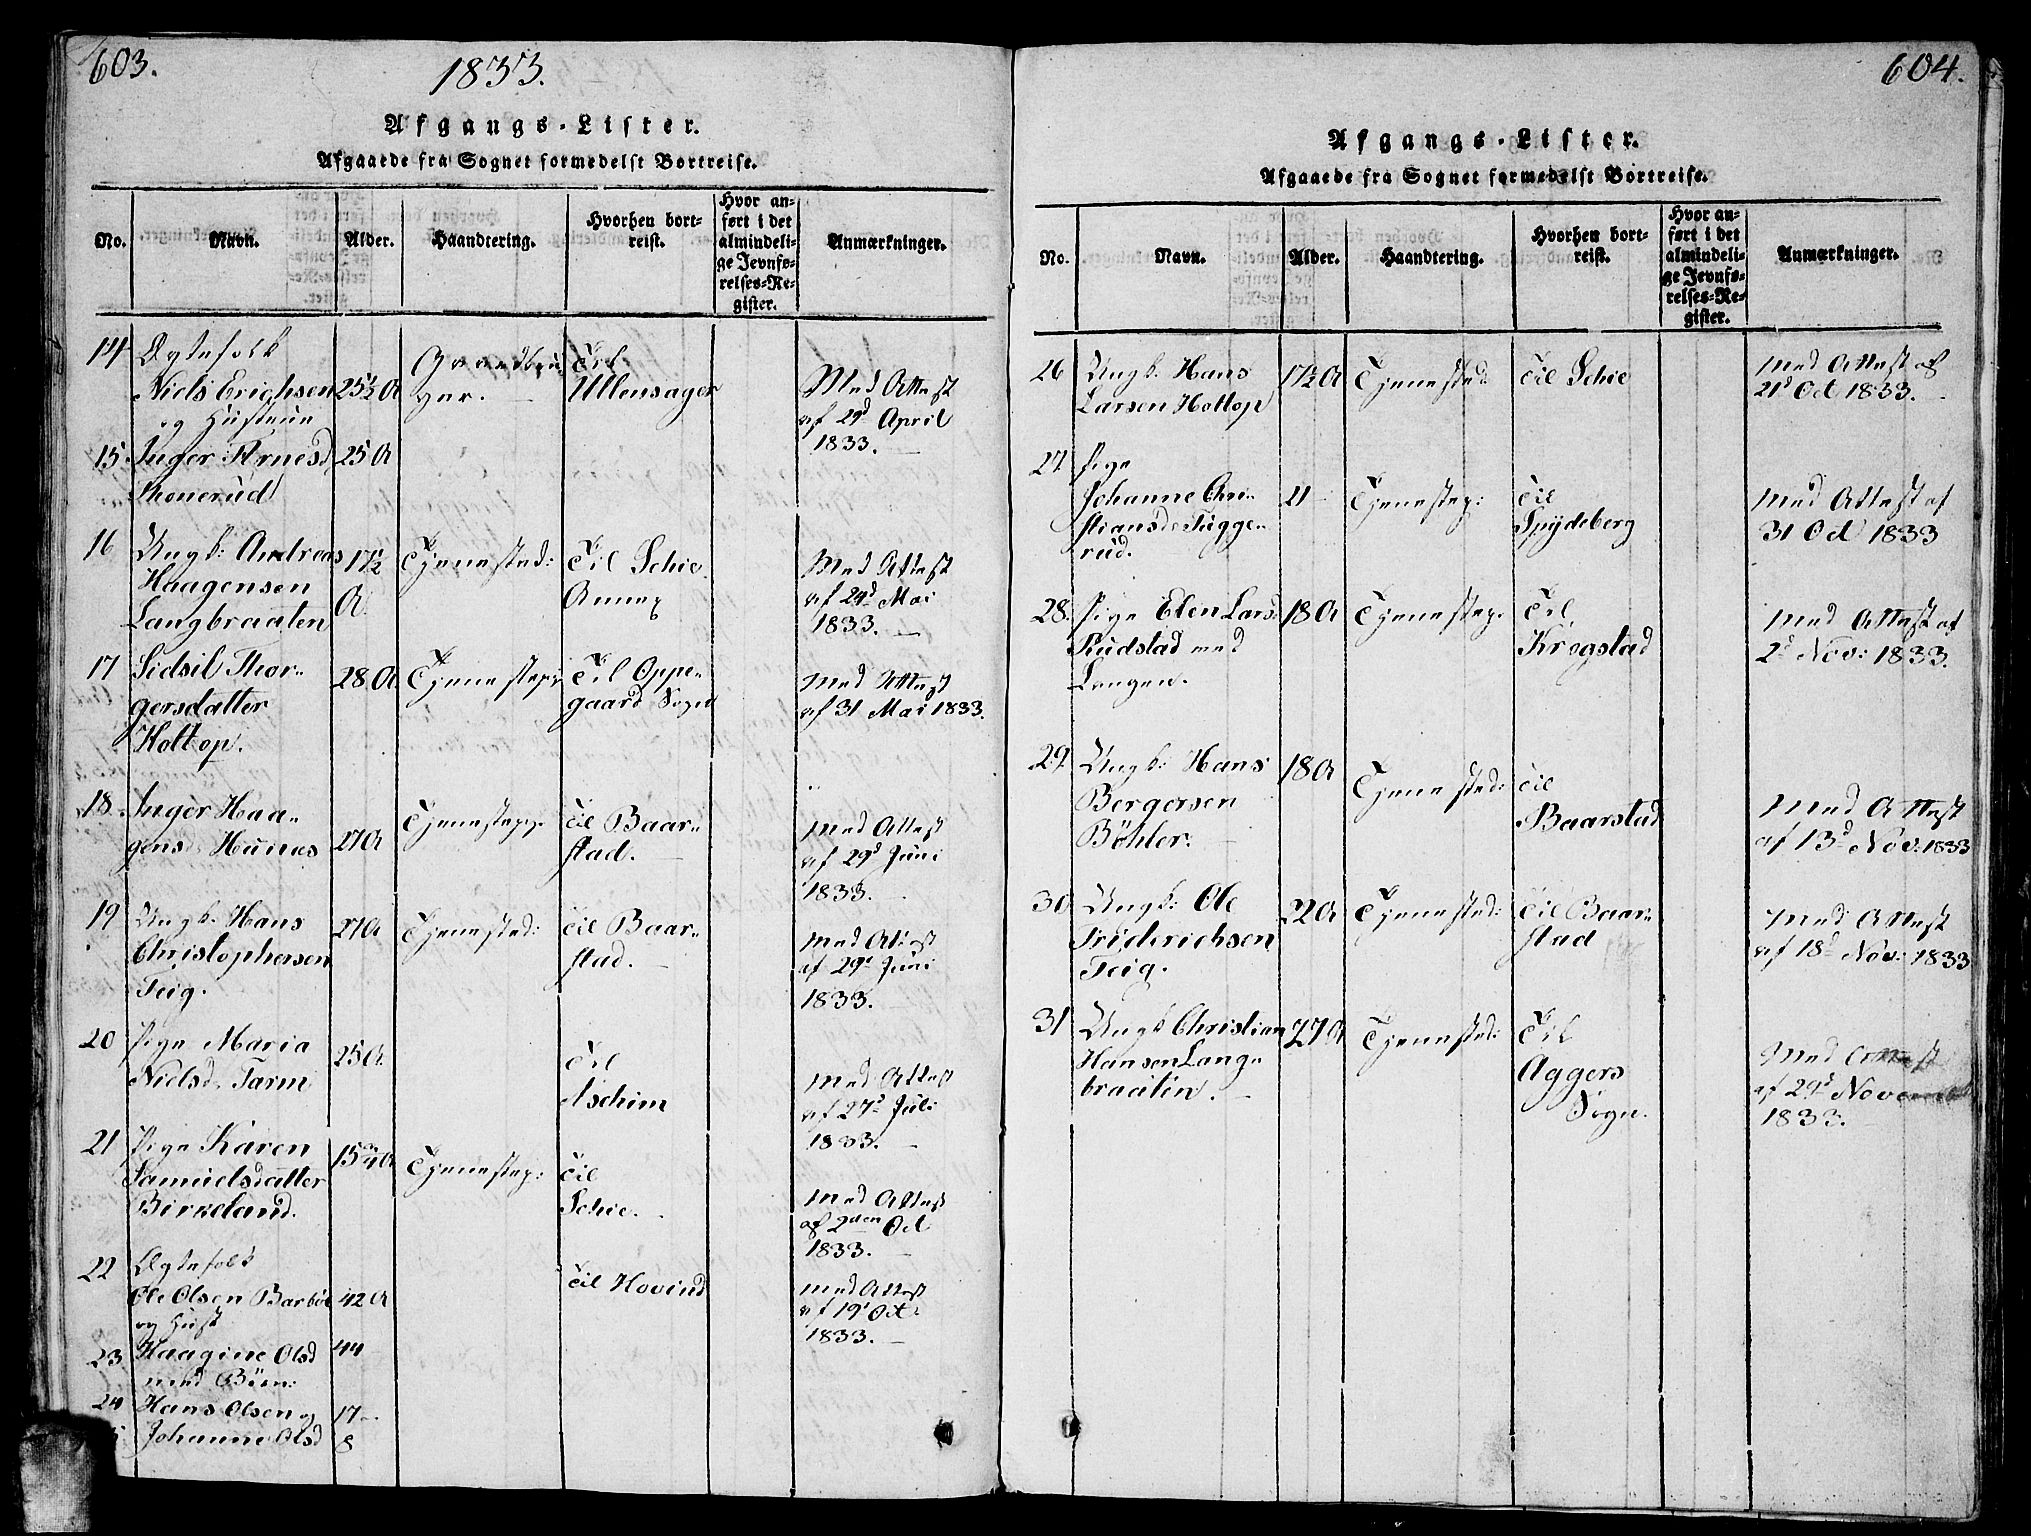 603.
1833.
Afgangs-Lister.
Afgaaede fra Sognet formedelst Bortreise.
No. Navn. Alder. Haandtering. Hvorhen bort-
reist. Hvor an-
ført i det
almindeli-
ge Jevnfø-
relses-Re-
gister. Anmærkninger.
14 Ægtefolk
Niels Erichsen
og Hustrue 25½ A Gaardbru
ger. Til
Ullensager Med Attest
af 29d April
1833.
15 Inger Arnesd
Skonerud 25 A
16 Ungk: Andreas
Haagensen
Langbraaten 17½
A Tjenested: Til Schie
Annex Med Attest
af 29d Mai
1833.
17 Sidsil Thor-
gersdatter
Holtop. 28 A Tjenestep: Til Oppe-
gaard Sogn Med Attest
af 31 Mai 1833.
18. Inger Haa-
gensd Hunas 27 A Tjenestep. Til Baar-
stad. Med Attest
af 29d Juni
1833.
19 Ungk. Hans
Christophersen
Teig. 27 A Tjenested: Til Baar-
stad. Med Attest
af 29d Juni
1833.
20 Pige Maria
Nielsd. Tarm 25 A. Til
Aschim Med Attest
af 27d Juli
1833.
21 Pige Karen
Samuelsdatter
Birkeland. 15¾ A Tjenestep: Til
Schie. Med Attest
af 2den Oct
1833.
22 Ægtefolk
Ole Olsen Barböl
og Hust 42 A Til Hovind Med Attest
af 19d Oct:
1833.
23 Haagine Olsd
med Börn: 44
24 Hans Olsen og 17
Johanne Olsd 8
604.
Afgangs-Lister.
Afgaaede fra Sognet formedelst Bortreise.
No. Navn. Alder. Haandtering. Hvorhen bort-
reist. Hvor an-
ført i det
almindeli-
ge Jevnfø-
relses-Re-
gister. Anmærkninger.
26 Ungk. Hans
Larsen Holtop 17½ A Tjenested. Til Schie Med Attest af
21d Oct 1833.
27. Pige
Johanne Chri-
stiansd. Tugge-
rud. 21 Tjenestep: Til
Spydeberg Med Attest af
31 Oct 1833
28. Pige Elen Lars:
Rudstad med
Langen. 18 A Tjenestep. Til
Krogstad Med Attest af
2d Nov: 1833.
29. Ungk: Hans
Bergersen
Böhler. 18 A Tjenested: Til
Baarstad Med Attest
af 13d Nov: 1833
30 Ungk: Ole
Friderichsen
Teig. 22 A Tjenested: Til Baar-
stad Med Attest
af 18d Nov: 1833
31 Ungk Christian
Hansen Lang-
braatin. 27 A Tjenested: Til
Aggers
Sogn. Med Attest
af 29d November
1833.